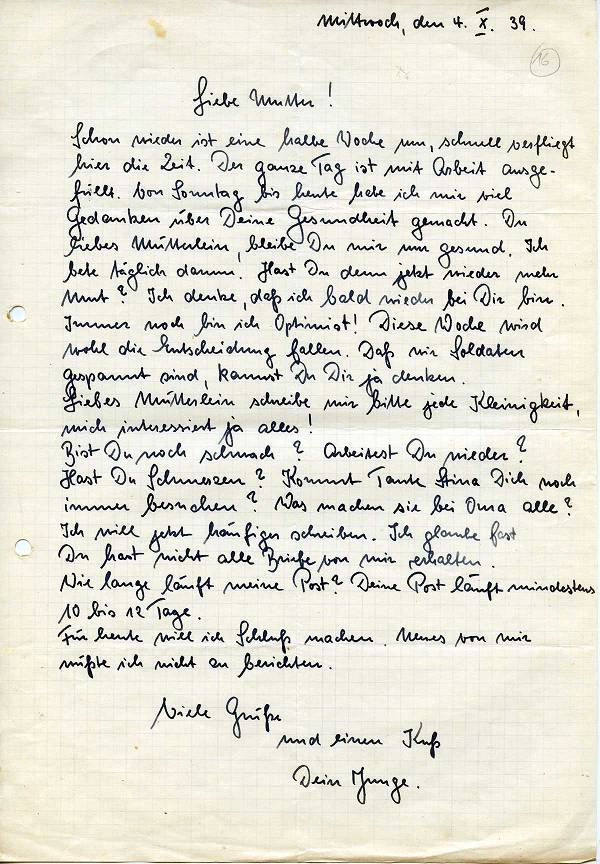 Mittwoch, den 4. X. 39.
16
Liebe Mutter!
Schon wieder ist eine halbe Woche um, schnell verfliegt
hier die Zeit. Der ganze Tag ist mit Arbeit ausge-
füllt. Von Sonntag bis heute habe ich mir viel
Gedanken über Deine Gesundheit gemacht. Du
liebes Mütterlein, bleibe Du mir nur gesund. Ich
bete täglich darum. Hast Du denn jetzt wieder mehr
Mut? Ich denke, daß ich bald wieder bei Dir bin.
Immer noch bin ich Optimist! Diese Woche wird
wohl die Entscheidung fallen. Daß wir Soldaten
gespannt sind, kannst Du Dir ja denken.
Liebes Mütterlein schreibe mir bitte jede Kleinigkeit,
mich interessiert ja alles!
Bist Du noch schwach? Arbeitest Du wieder?
Hast Du Schmerzen? Kommt Tante Stina Dich noch
immer besuchen? Was machen sie bei Oma alle?
Ich will jetzt häufiger schreiben. Ich glaube fast
Du hast nicht alle Briefe von mir erhalten.
Wie lange läuft meine Post? Deine Post läuft mindestens
10 bis 12 Tage.
Für heute will ich Schluß machen. Neues von mir
wüßte ich nicht zu berichten.
Viele Grüße
und einen Kuß
Dein Junge.